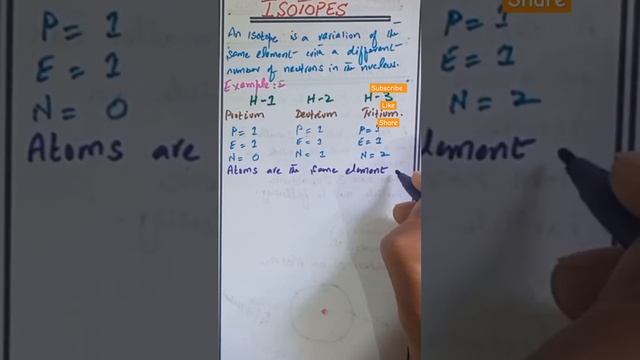 ISOTOPES
An Isotope is a variation of the
same element with a different
number of neutrons in the nucleus.
Example:s
H-1 H-2 H-3
Protium Deutrium Tritium.
P=1 P=1 P=1
E=1 E=1 E=1
N=0 N=1 N=2
Atoms are the same element
Subscribe
Like
Share
Share
P=1
E=1
N=0
Atoms are
N=2
lement